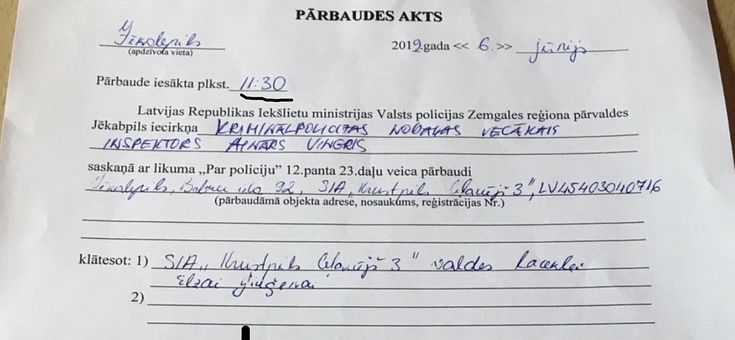 PĀRBAUDES AKTS
Jēkabpils
(apdzīvota vieta)
2019.gada << 6. >> jūnijs
Pārbaude iesākta plkst. 11:30
Latvijas Republikas Iekšlietu ministrijas Valsts policijas Zemgales reģiona pārvaldes
Jēkabpils iecirkņa KRIMINĀLPOLICIJAS NODAĻAS VECĀKAIS
INSPEKTORS AINĀRS VINGRIS
saskaņā ar likuma „Par policiju” 12.panta 23.daļu veica pārbaudi
Jēkabpils, iela 92, SIA, Krustpils 3", LV45403040716
(pārbaudāmā objekta adrese, nosaukums, reģistrācijas Nr.)
klātesot: 1) SIA „Krustpils 3" valdes
2)